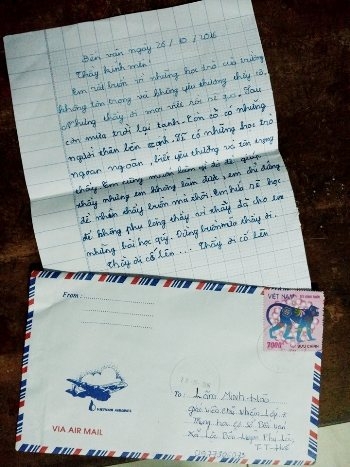 Bến ván ngày 26/10/2016
Thầy kính mến!
Em rất buồn vì những học trò của trường
không tôn trọng và không yêu thương thầy cô.
Nhưng thầy ơi mọi việc rồi sẽ qua. Sau
cơn mưa trời lại tạnh. Còn có những
người thân bên cạnh. Sẽ có những học trò
ngoan ngoãn, biết yêu thương và tôn trọng
thầy. Em cũng muốn làm gì đó để giúp
thầy nhưng em không làm được, em chỉ đứng
để nhìn thầy buồn mà thôi. Em hứa sẽ học
để không phụ lòng thầy vì thầy đã cho em
những bài học quý. Đừng buồn nữa thầy ơi.
Thầy ơi cố lên... Thầy ơi cố lên
From :
VIỆT NAM
7000đ
BƯU CHÍNH
VIETNAM AIRLINES
VIA AIR MAIL
To :
giáo viên chủ nhiệm lớp
Trung học cơ sở Bến ván
Xã Lộc Bổn huyện Phú Lộc
T.T Huế